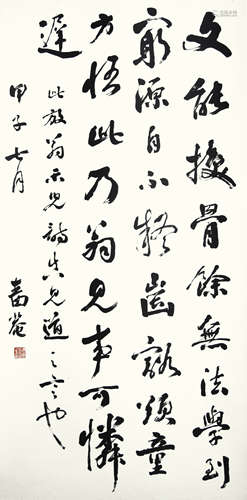 文能換骨餘無法學到
窮源自不疑齒豁頭童
方悟此乃翁見事可憐
遲 此放翁示兒詩真見道之言也
甲子七月 嗇菴